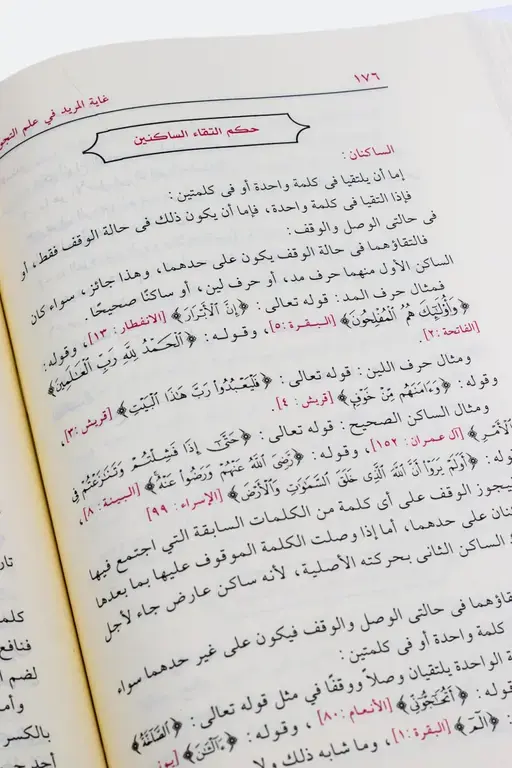 ١٧٦
غاية المريد في علم التجو
حكم التقاء الساكنين
الساكنان :
إما أن يلتقيا فى كلمة واحدة أو فى كلمتين :
فإذا التقيا فى كلمة واحدة، فإما أن يكون ذلك فى حالة الوقف فقط، أو
فى حالتى الوصل والوقف:
فالتقاؤهما فى حالة الوقف يكون على حدهما، وهذا جائز، سواء كان
الساكن الأول منهما حرف مد، أو حرف لين، أو ساكنًا صحيحًا.
فمثال حرف المد: قوله تعالى: ﴿إِنَّ ٱلْأَبْرَارَ﴾ [الانفطار: ١٣]، وقوله:
﴿وَأُوْلَٰٓئِكَ هُمُ ٱلْمُفْلِحُونَ﴾ [البقرة:٥]، وقوله: ﴿ٱلْحَمْدُ لِلَّهِ رَبِّ ٱلْعَٰلَمِينَ﴾
[الفاتحة:٢].
ومثال حرف اللين: قوله تعالى: ﴿فَلْيَعْبُدُوا۟ رَبَّ هَٰذَا ٱلْبَيْتِ﴾ [قريش:٣]،
وقوله: ﴿وَءَامَنَهُم مِّنْ خَوْفٍ﴾ [قريش: ٤].
ومثال الساكن الصحيح: قوله تعالى: ﴿حَتَّىٰٓ إِذَا فَشِلْتُمْ وَتَنَٰزَعْتُمْ فِى
ٱلْأَمْرِ﴾ [آل عمران: ١٥٢]، وقوله: ﴿رَّضِىَ ٱللَّهُ عَنْهُمْ وَرَضُوا۟ عَنْهُ﴾ [البينة: ٨]،
وله: ﴿أَوَلَمْ يَرَوْا۟ أَنَّ ٱللَّهَ ٱلَّذِى خَلَقَ ٱلسَّمَٰوَٰتِ وَٱلْأَرْضَ﴾ [الإسراء: ٩٩]
يجوز الوقف على أى كلمة من الكلمات السابقة التى اجتمع فيها
نان على حدهما، أما إذا وصلت الكلمة الموقوف عليها بما بعدها
الساكن الثانى بحركته الأصلية، لأنه ساكن عارض جاء لأجل
قاؤهما فى حالتى الوصل والوقف فيكون على غير حدهما سواء
كلمة واحدة أو فى كلمتين:
ة الواحدة يلتقيان وصلاً ووقفًا في مثل قوله تعالى: ﴿ٱلصَّآخَّةُ﴾
وله: ﴿أَتُحَٰٓجُّوٓنِّى﴾ [الأنعام: ٨٠]، وقوله: ﴿ءَآلْـَٰٔنَ﴾ [يو
وله: ﴿الٓمٓ﴾ [البقرة: ١]، وما شابه ذلك ولا
كلم
فنافع
لضم ا
وأم
بالكسر